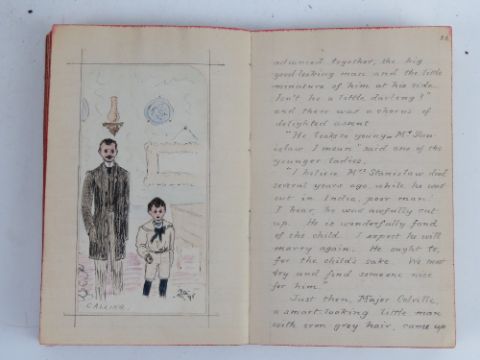 CALLING.
advanced together, the big
good looking man and the little
miniature of him at his side.
Isn't he a little darling?"
and there was a chorus of
delighted assent
"He looks so young – Mr Stan-
islaw I mean" said one of the
younger ladies.
"I believe Mrs Stanislaw died
several years ago, while he was
out in India, poor man!
I hear he was awfully cut
up. He is wonderfully fond
of the child. I expect he will
marry again. He ought to,
for the child's sake. We must
try and find someone nice
for him."
Just then, Major Colville,
a smart looking little man
with iron grey hair, came up